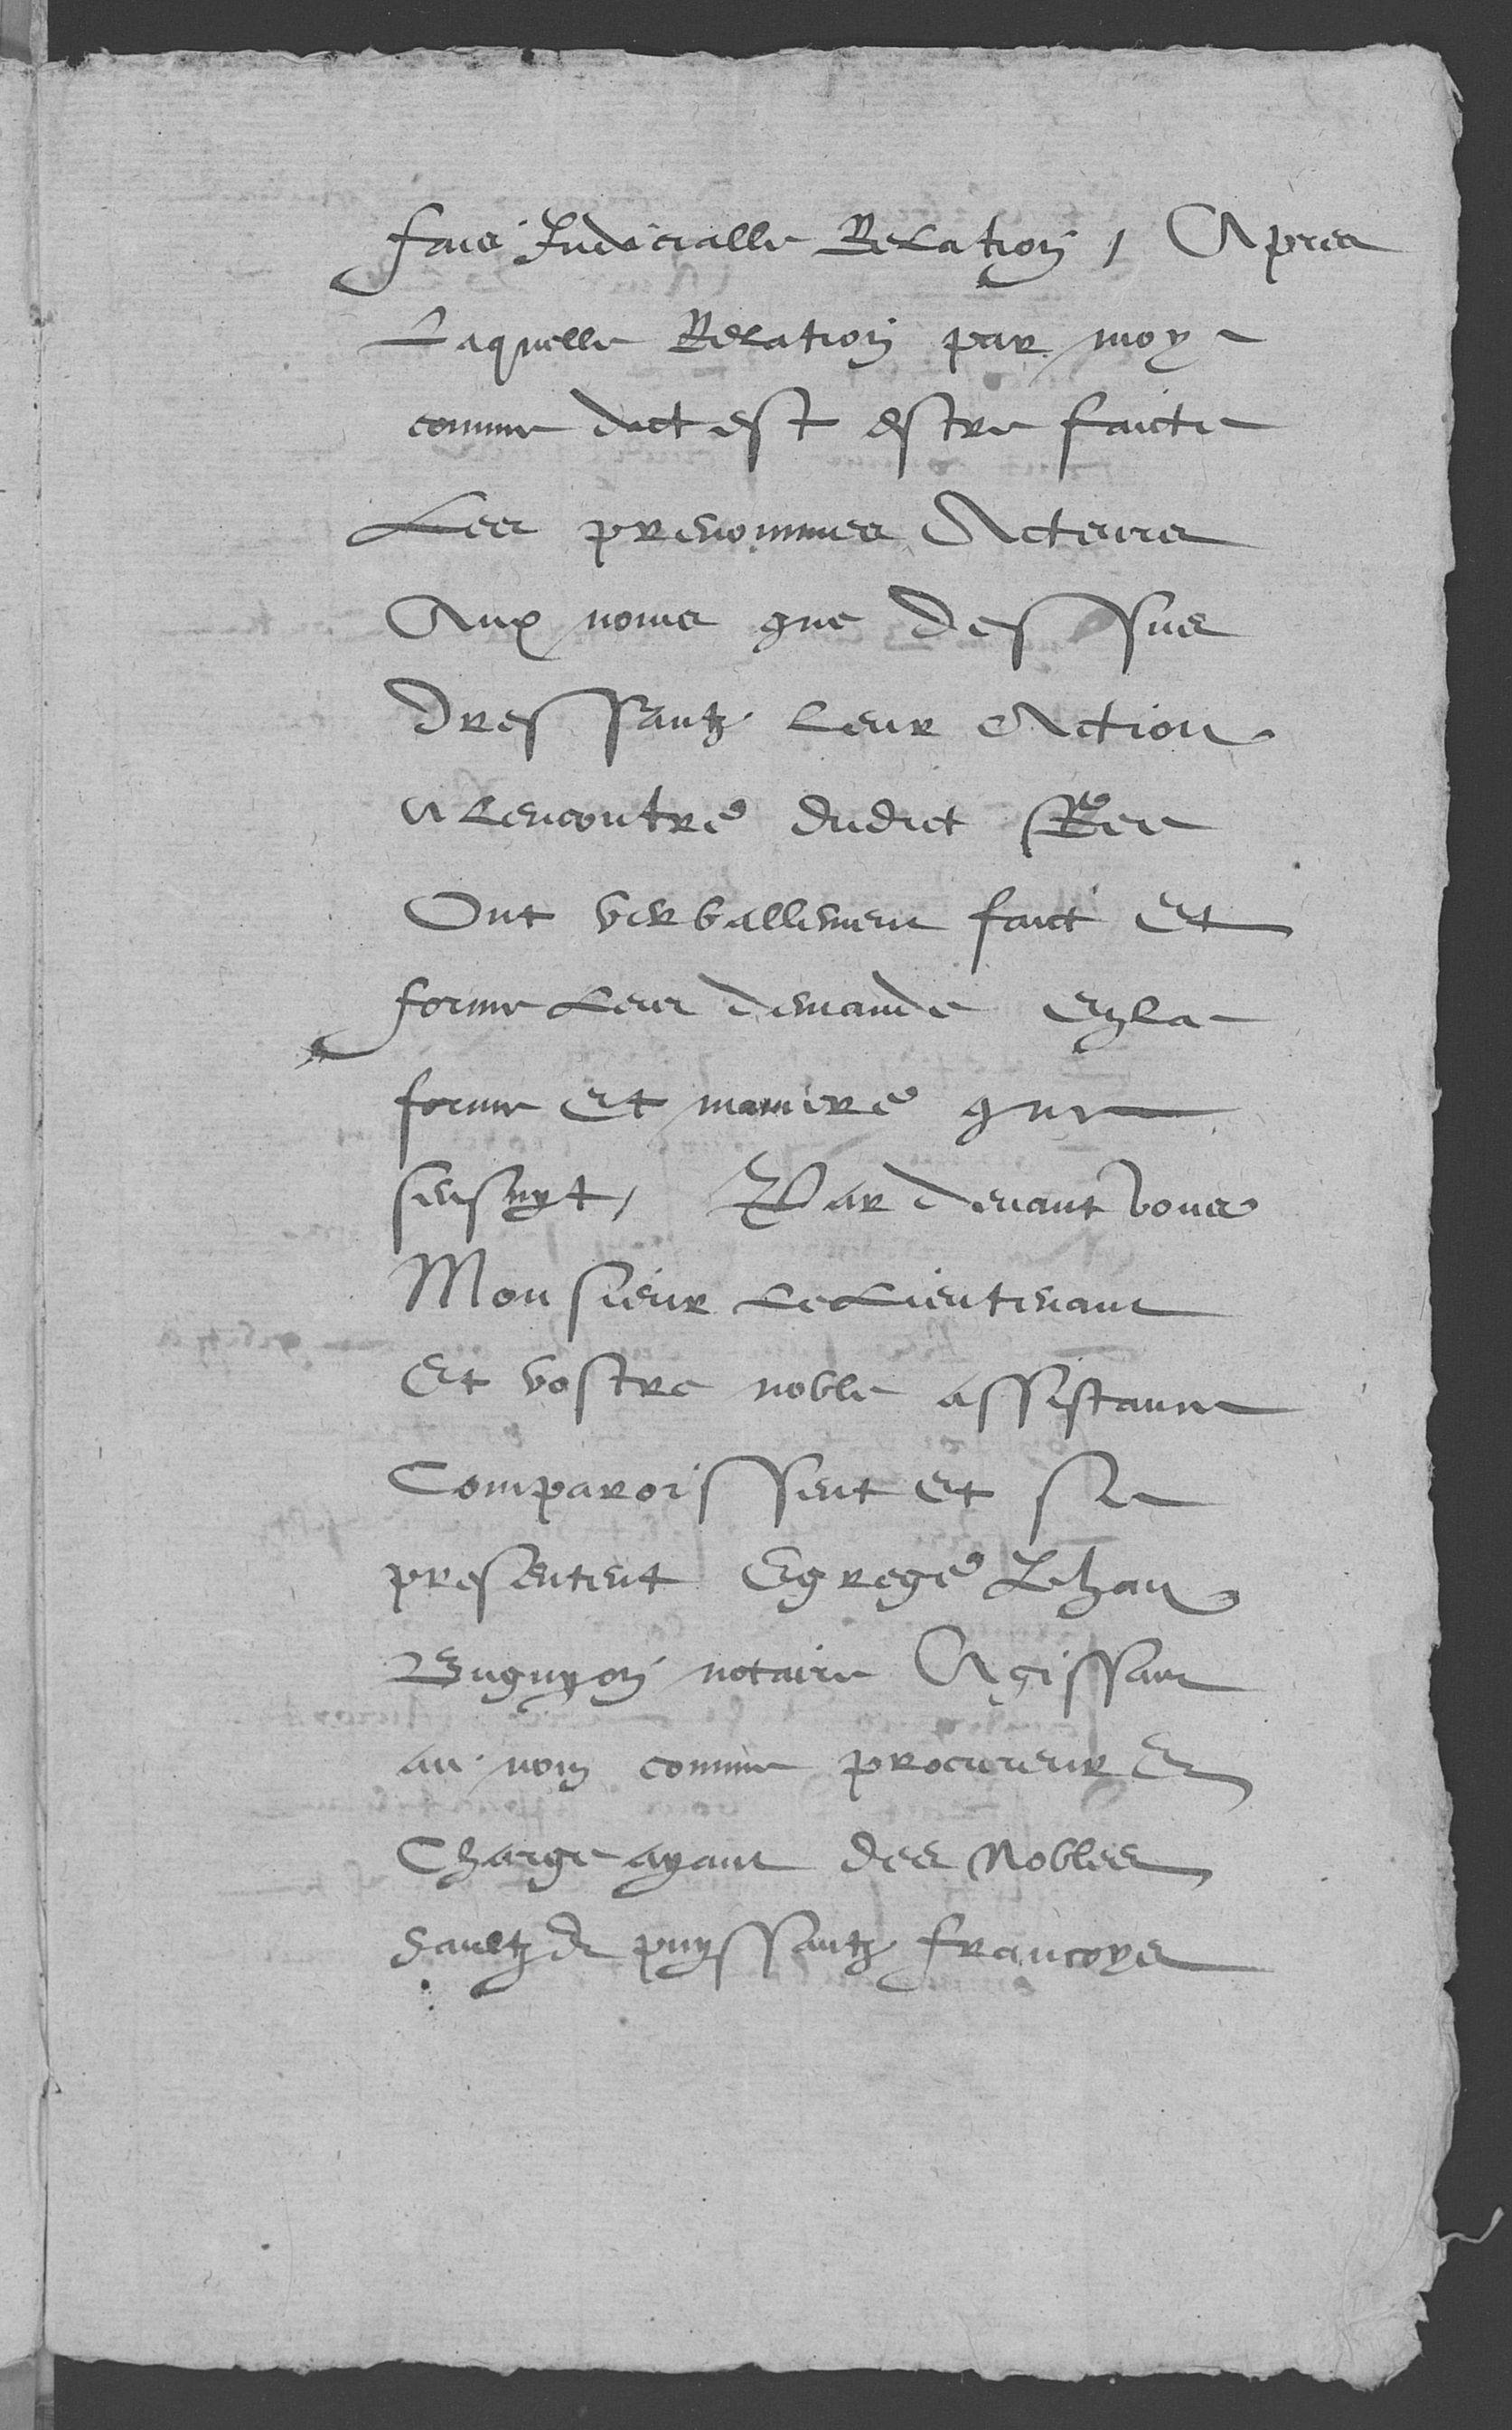 fais Judicialle Relation, Apres
Laquelle Relation par moy
comme dict est estre faicte
Les prenommes Acteurs
Aux noms que dessus
dressantz leur Action
a lencontre dudict Ree
Ont verballement faict et
forme Leur demande en la
forme et maniere que
sensuyt, Par devant vous
Monsieur le Lieutenant
Et vostre noble assistance
Comparoissent et se
presentent Egrege Jehan
Buguyon notaire Agissant
au nom comme procureur Et
Charge ayant des Nobles
haultz et puyssantz francoys